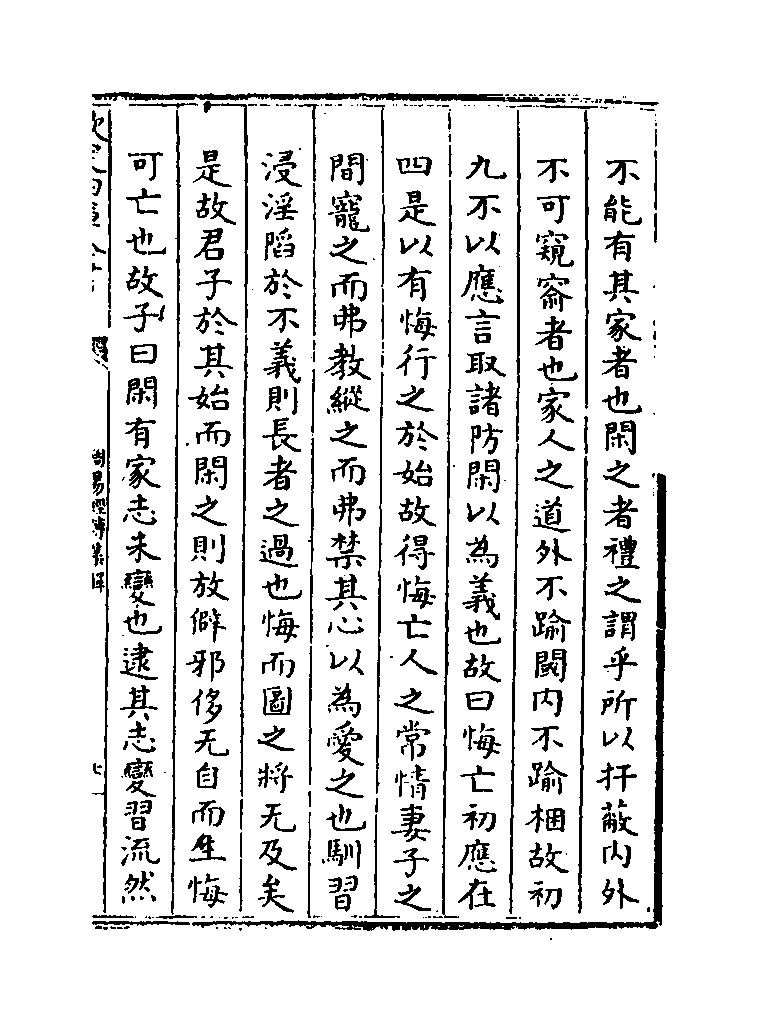 不能有其家者也閑之者禮之謂乎所以扞蔽内外
不可窺窬者也家人之道外不踰閾内不踰梱故初
九不以應言取諸防閑以為義也故曰悔亡初應在
四是以有悔行之於始故得悔亡人之常情妻子之
間寵之而弗教縱之而弗禁其心以為愛之也馴習
浸淫陷於不義則長者之過也悔而圖之將无及矣
是故君子於其始而閑之則放僻邪侈无自而生悔
可亡也故子曰閑有家志未變也逮其志變習流然
欽定四庫全書
周易經傳集解